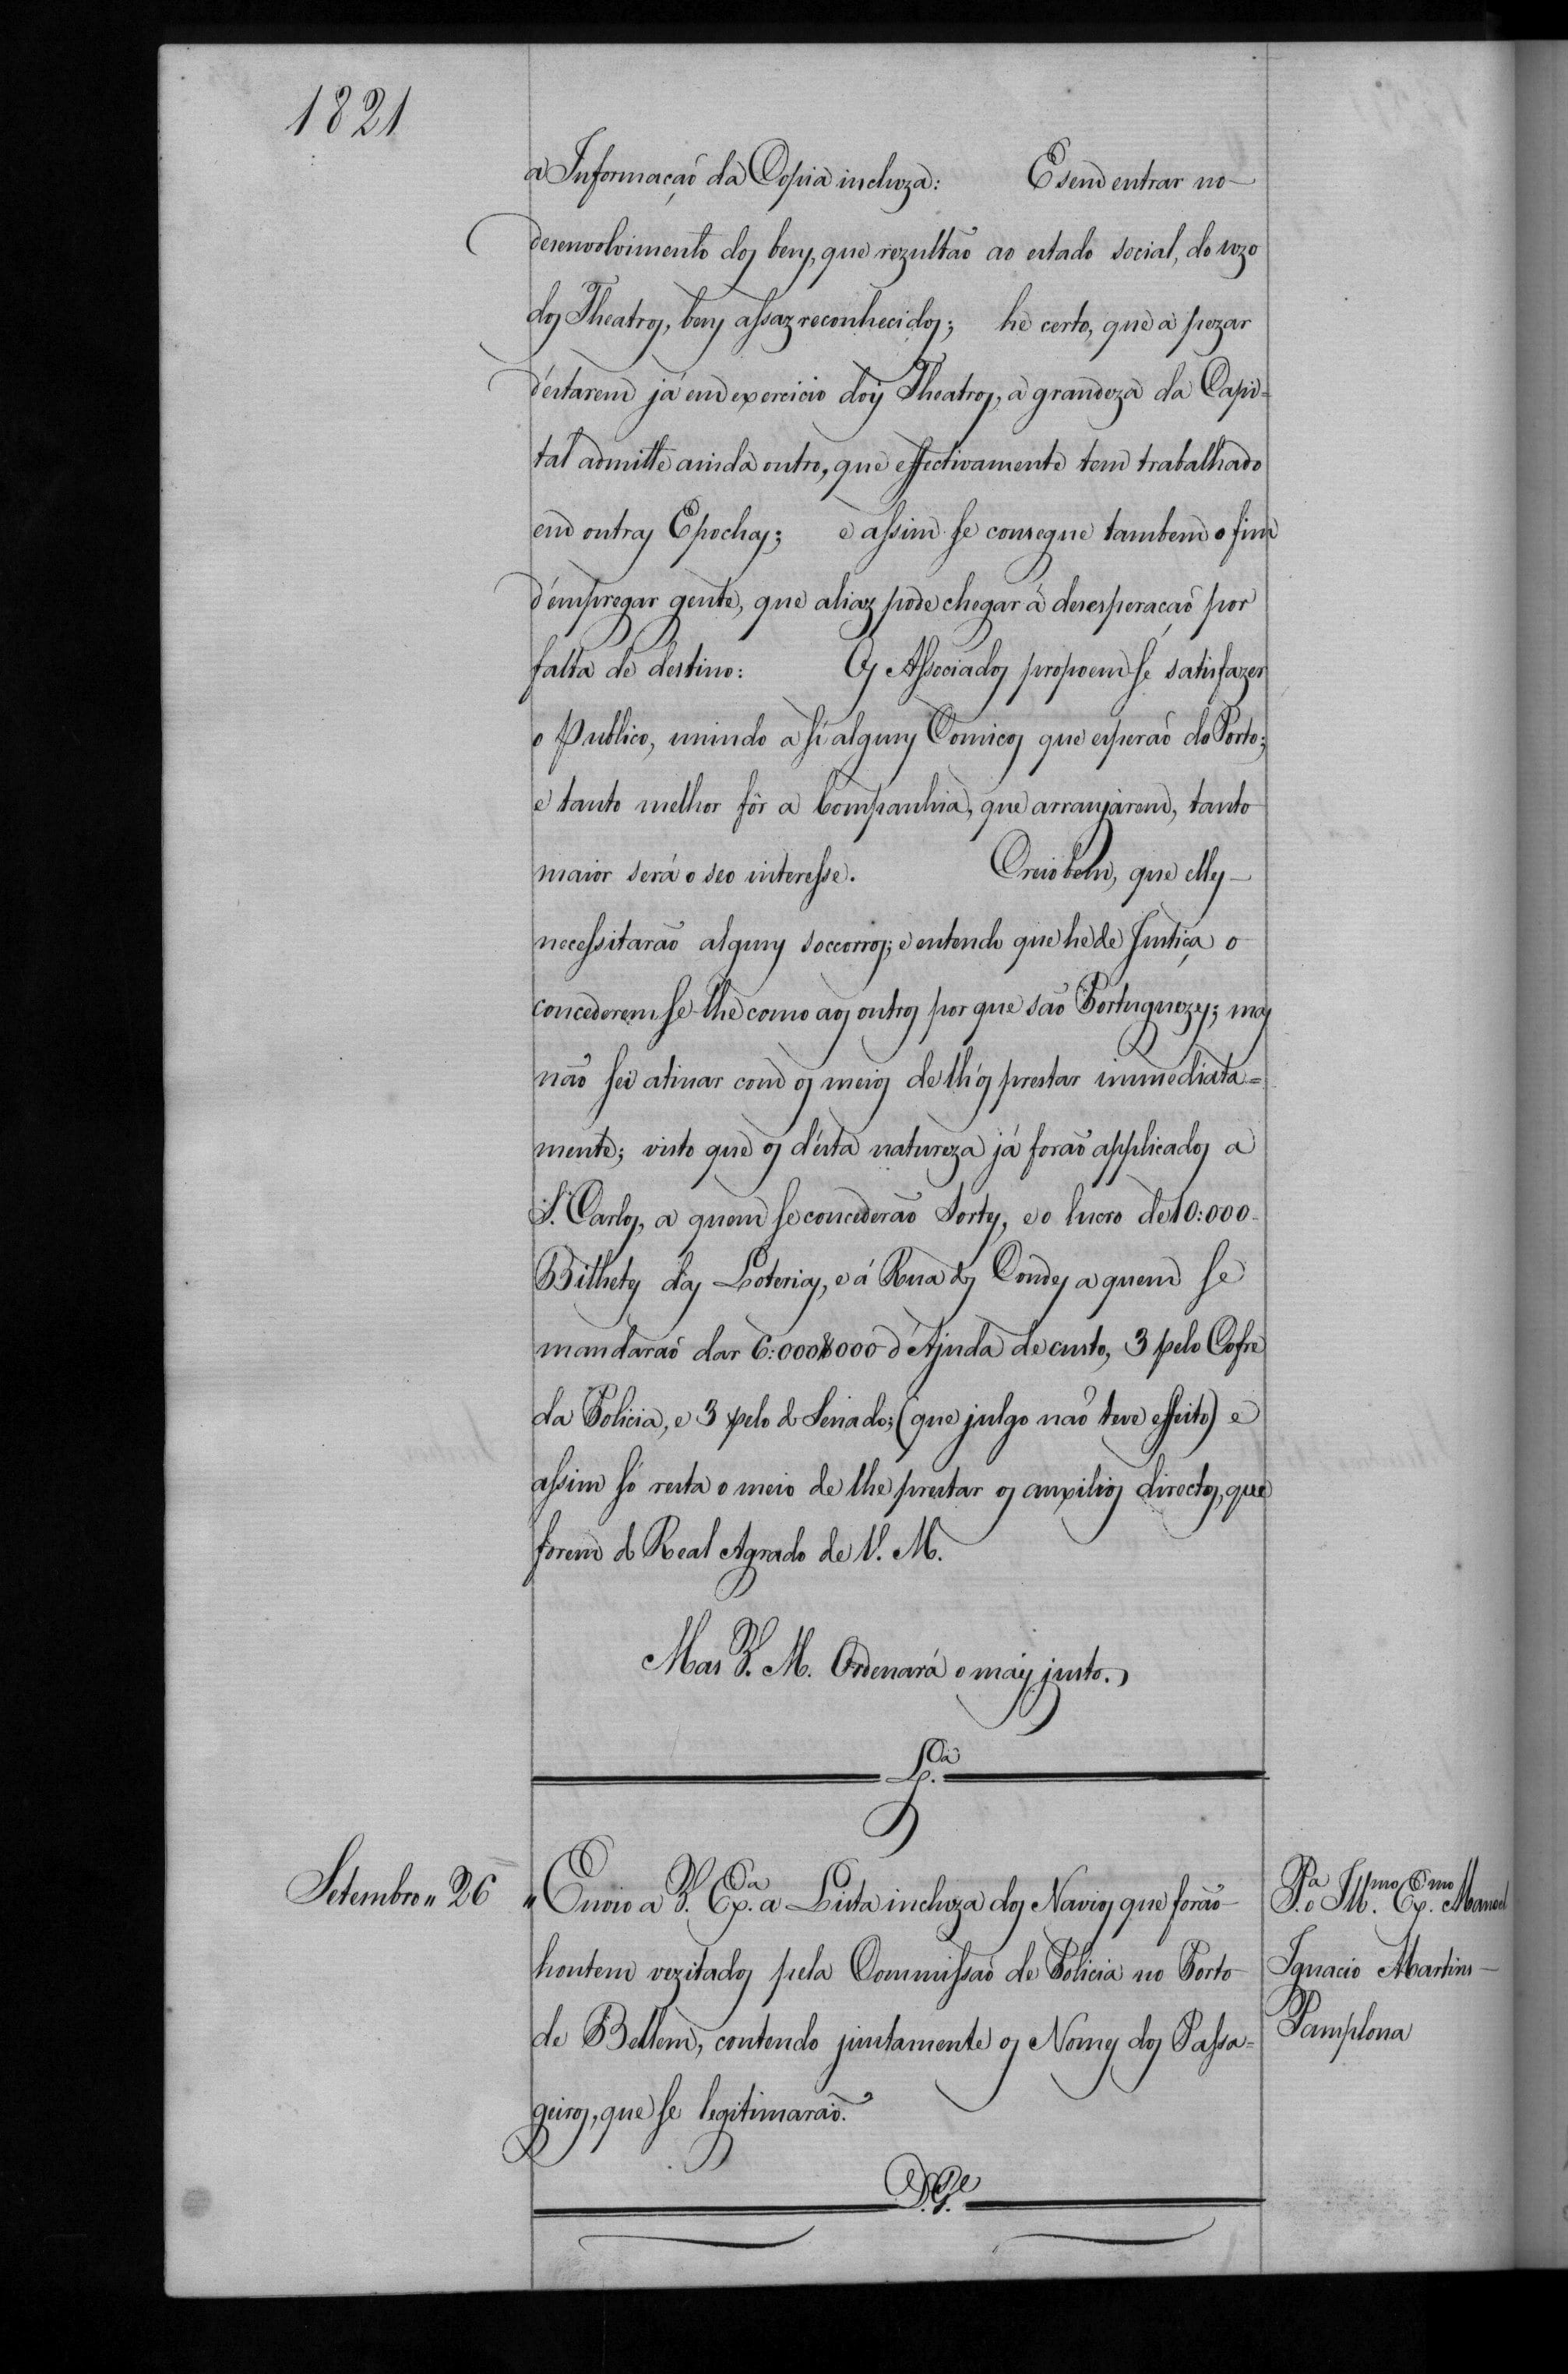 1821
a Informação da Copia incluza: E sem entrar no
desenvolvimento dos bens, que rezultão ao estado social, do uzo
dos Theatros, bens assaz reconhecidos; he certo, que a pezar
d'estarem já em exercicio dois Theatros, a grandeza da Capi=
tal admitte ainda outro, que effectivamente tem trabalhado
em outras Epochas; e assim se consegue tambem o fim
d'empregar gente, que aliaz pode chegar á desesperação por
falta de destino: Os Associados propoem se satisfazer
o Publico, unindo a si alguns Comicos que esperão do Porto;
e tanto melhor fôr a Companhia, que arranjarem, tanto
maior será o seo interesse. Creio bem, que elles
necessitarão alguns soccorros; e entendo que he de Justiça o
concederem se lhe como aos outros por que são Portuguezes; mas
não sei atinar com os meios de lh'os prestar immediata=
mente; visto que os d'esta natureza já forão applicados a
S. Carlos, a quem se concederão Sortes, e o lucro de 10:000
Bilhetes das Loterias, e á Rua dos Condes a quem se
mandarão dar 6:000$000 d'Ajuda de custo, 3 pelo Cofre
da Policia, e 3 pelo do Senado; (que julgo não teve effeito) e
assim só resta o meio de lhe prestar os auxilios directos, que
forem do Real Agrado de V. M.
Mas V. M. Ordenará o mais justo.
L.ᶜᵃ
Setembro „ 26
„ Envio a V. Ex.ᶜⁱᵃ a Lista incluza dos Navios que forão
hontem vezitados pela Commissão de Policia no Porto
de Bellem, contendo juntamente os Nomes dos Passa=
geiros, que se legitimarão.
D. G.ᵉ
P.ᵃ o Ill.ᵐᵒ Ex.ᵐᵒ Manoel
Ignacio Martins
Pamplona